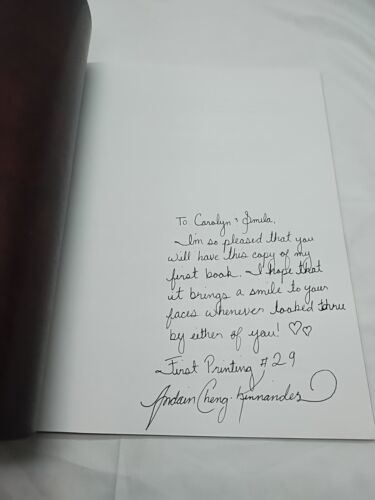 To Carolyn & Smila,
I'm so pleased that you
will have this copy of my
first book. I hope that
it brings a smile to your
faces whenever looked thru
by either of you! ♡♡
First Printing #29
Cheng-